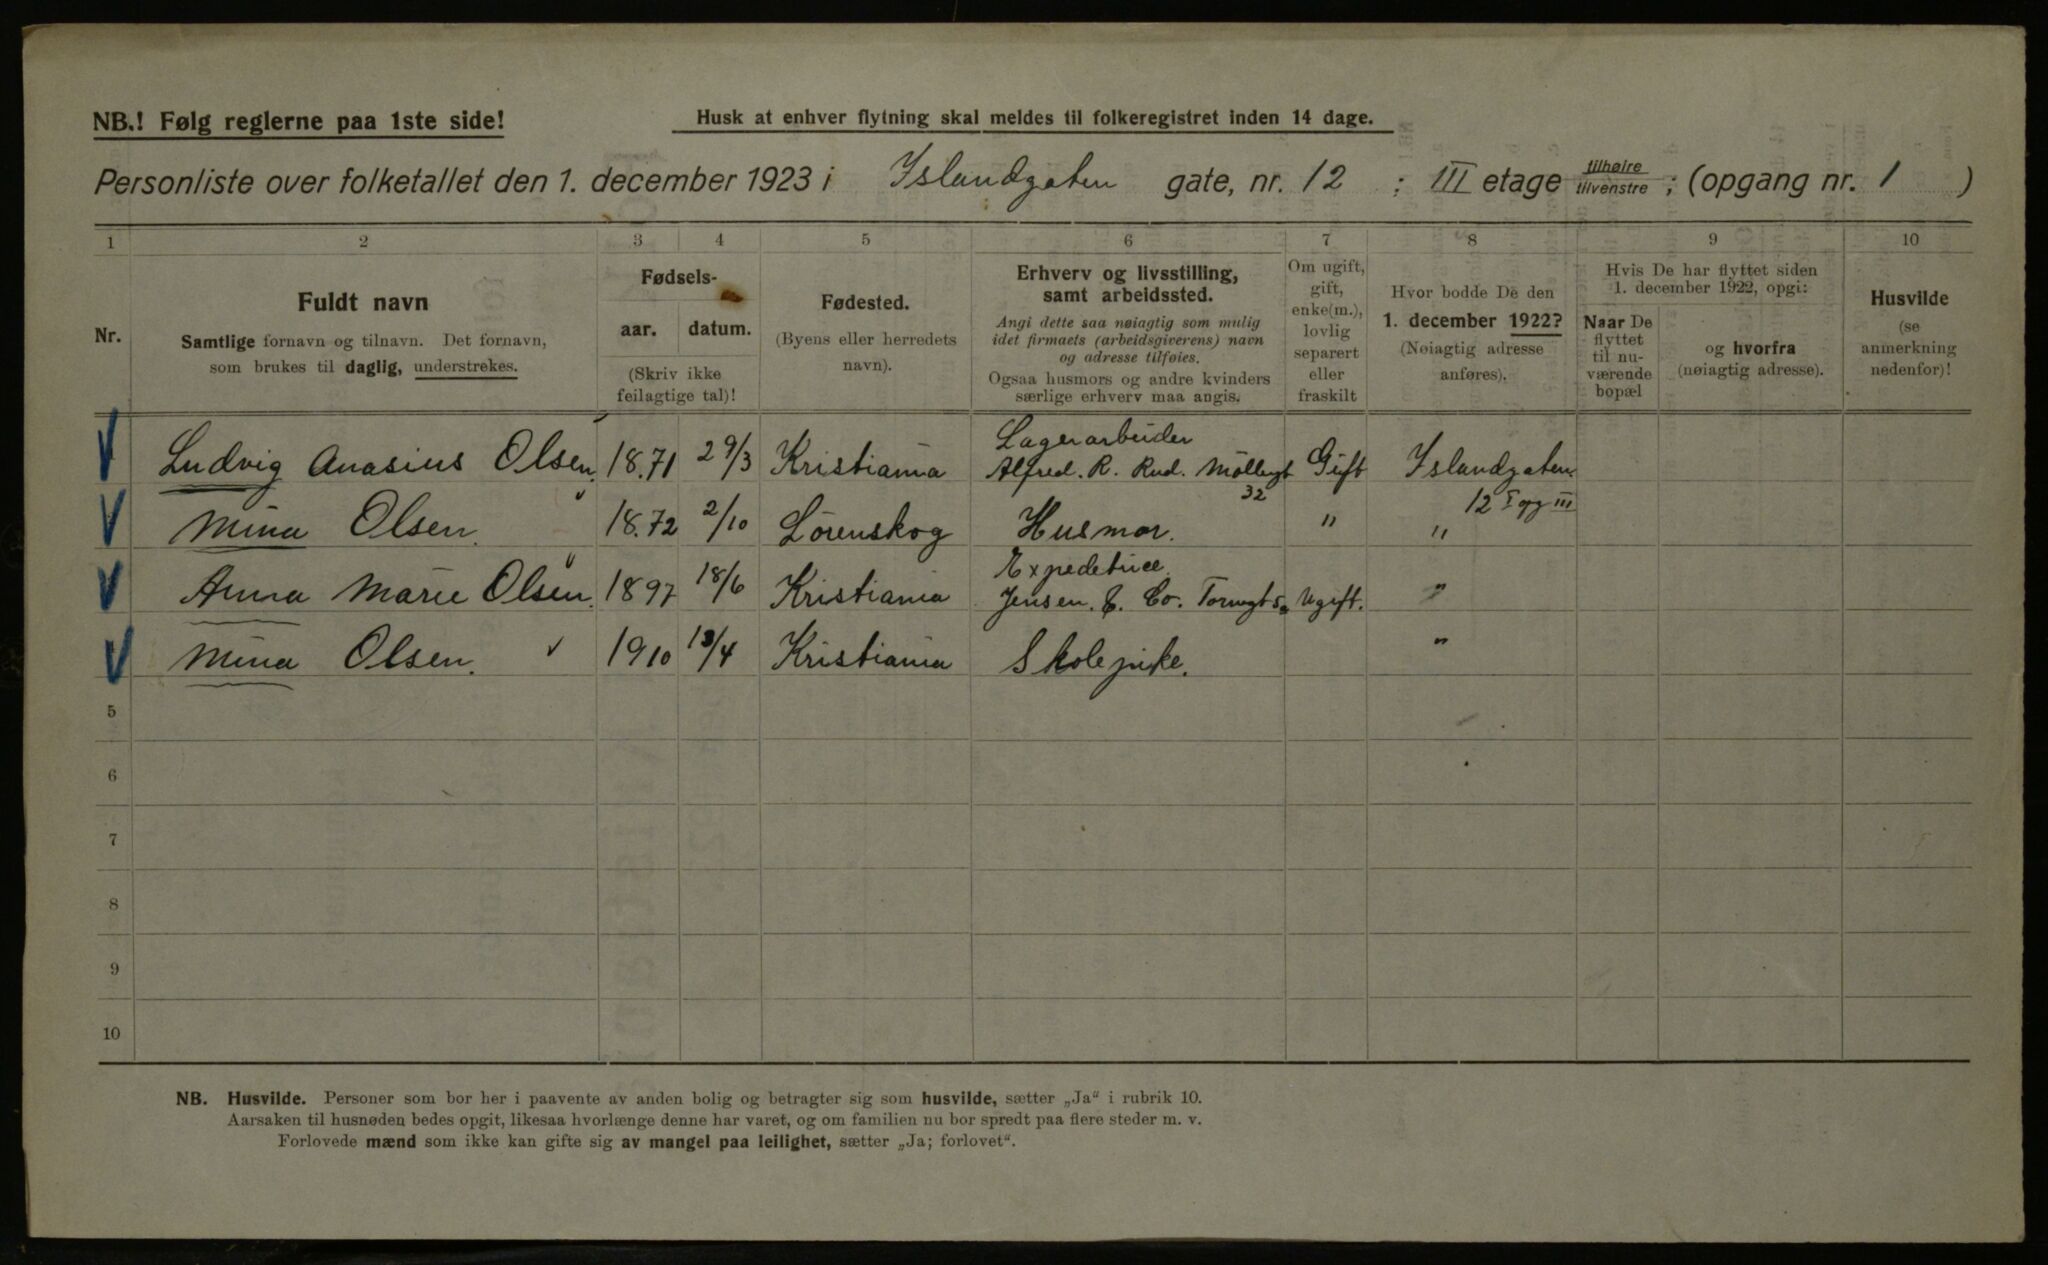 NB.! Følg reglerne paa 1ste side!
Husk at enhver flytning skal meldes til folkeregistret inden 14 dage.
Personliste over folketallet den 1. december 1923 i Islandgaten gate, nr. 12 ; III etage tilhøire/tilvenstre ; (opgang nr. 1 )
1 2 3 4 5 6 7 8 9 10
Nr.
Fuldt navn
Samtlige fornavn og tilnavn. Det fornavn,
som brukes til daglig, understrekes.
Fødsels-
aar. datum.
(Skriv ikke
feilagtige tal)!
Fødested.
(Byens eller herredets
navn).
Erhverv og livsstilling,
samt arbeidssted.
Angi dette saa nøiagtig som mulig
idet firmaets (arbeidsgiverens) navn
og adresse tilføies.
Ogsaa husmors og andre kvinders
særlige erhverv maa angis.
Om ugift,
gift,
enke(m.),
lovlig
separert
eller
fraskilt
Hvor bodde De den
1. december 1922?
(Nøiagtig adresse
anføres).
Hvis De har flyttet siden
1. december 1922, opgi:
Naar De
flyttet
til nu-
værende
bopæl
og hvorfra
(nøiagtig adresse).
Husvilde
(se
anmerkning
nedenfor)!
Lagerarbeider
Ludvig Anasius Olsen. 18.71 29/3 Kristiania Alfred. R. Rud. Möllergt Gift Islandgaten
32 12 I og III
Mina Olsen. 18.72 2/10 Lörenskog Husmor. " "
Expeditrice.
Anna Marie Olsen. 1897 18/6 Kristiania Jensen. & Co. Torvgt Ugift. "
Mina Olsen. 1910 /4 Kristiania Skolepike. "
5
6
7
8
9
10
NB. Husvilde. Personer som bor her i paavente av anden bolig og betragter sig som husvilde, sætter „Ja“ i rubrik 10.
Aarsaken til husnøden bedes opgit, likesaa hvorlænge denne har varet, og om familien nu bor spredt paa flere steder m. v.
Forlovede mænd som ikke kan gifte sig av mangel paa leilighet, sætter „Ja; forlovet“.